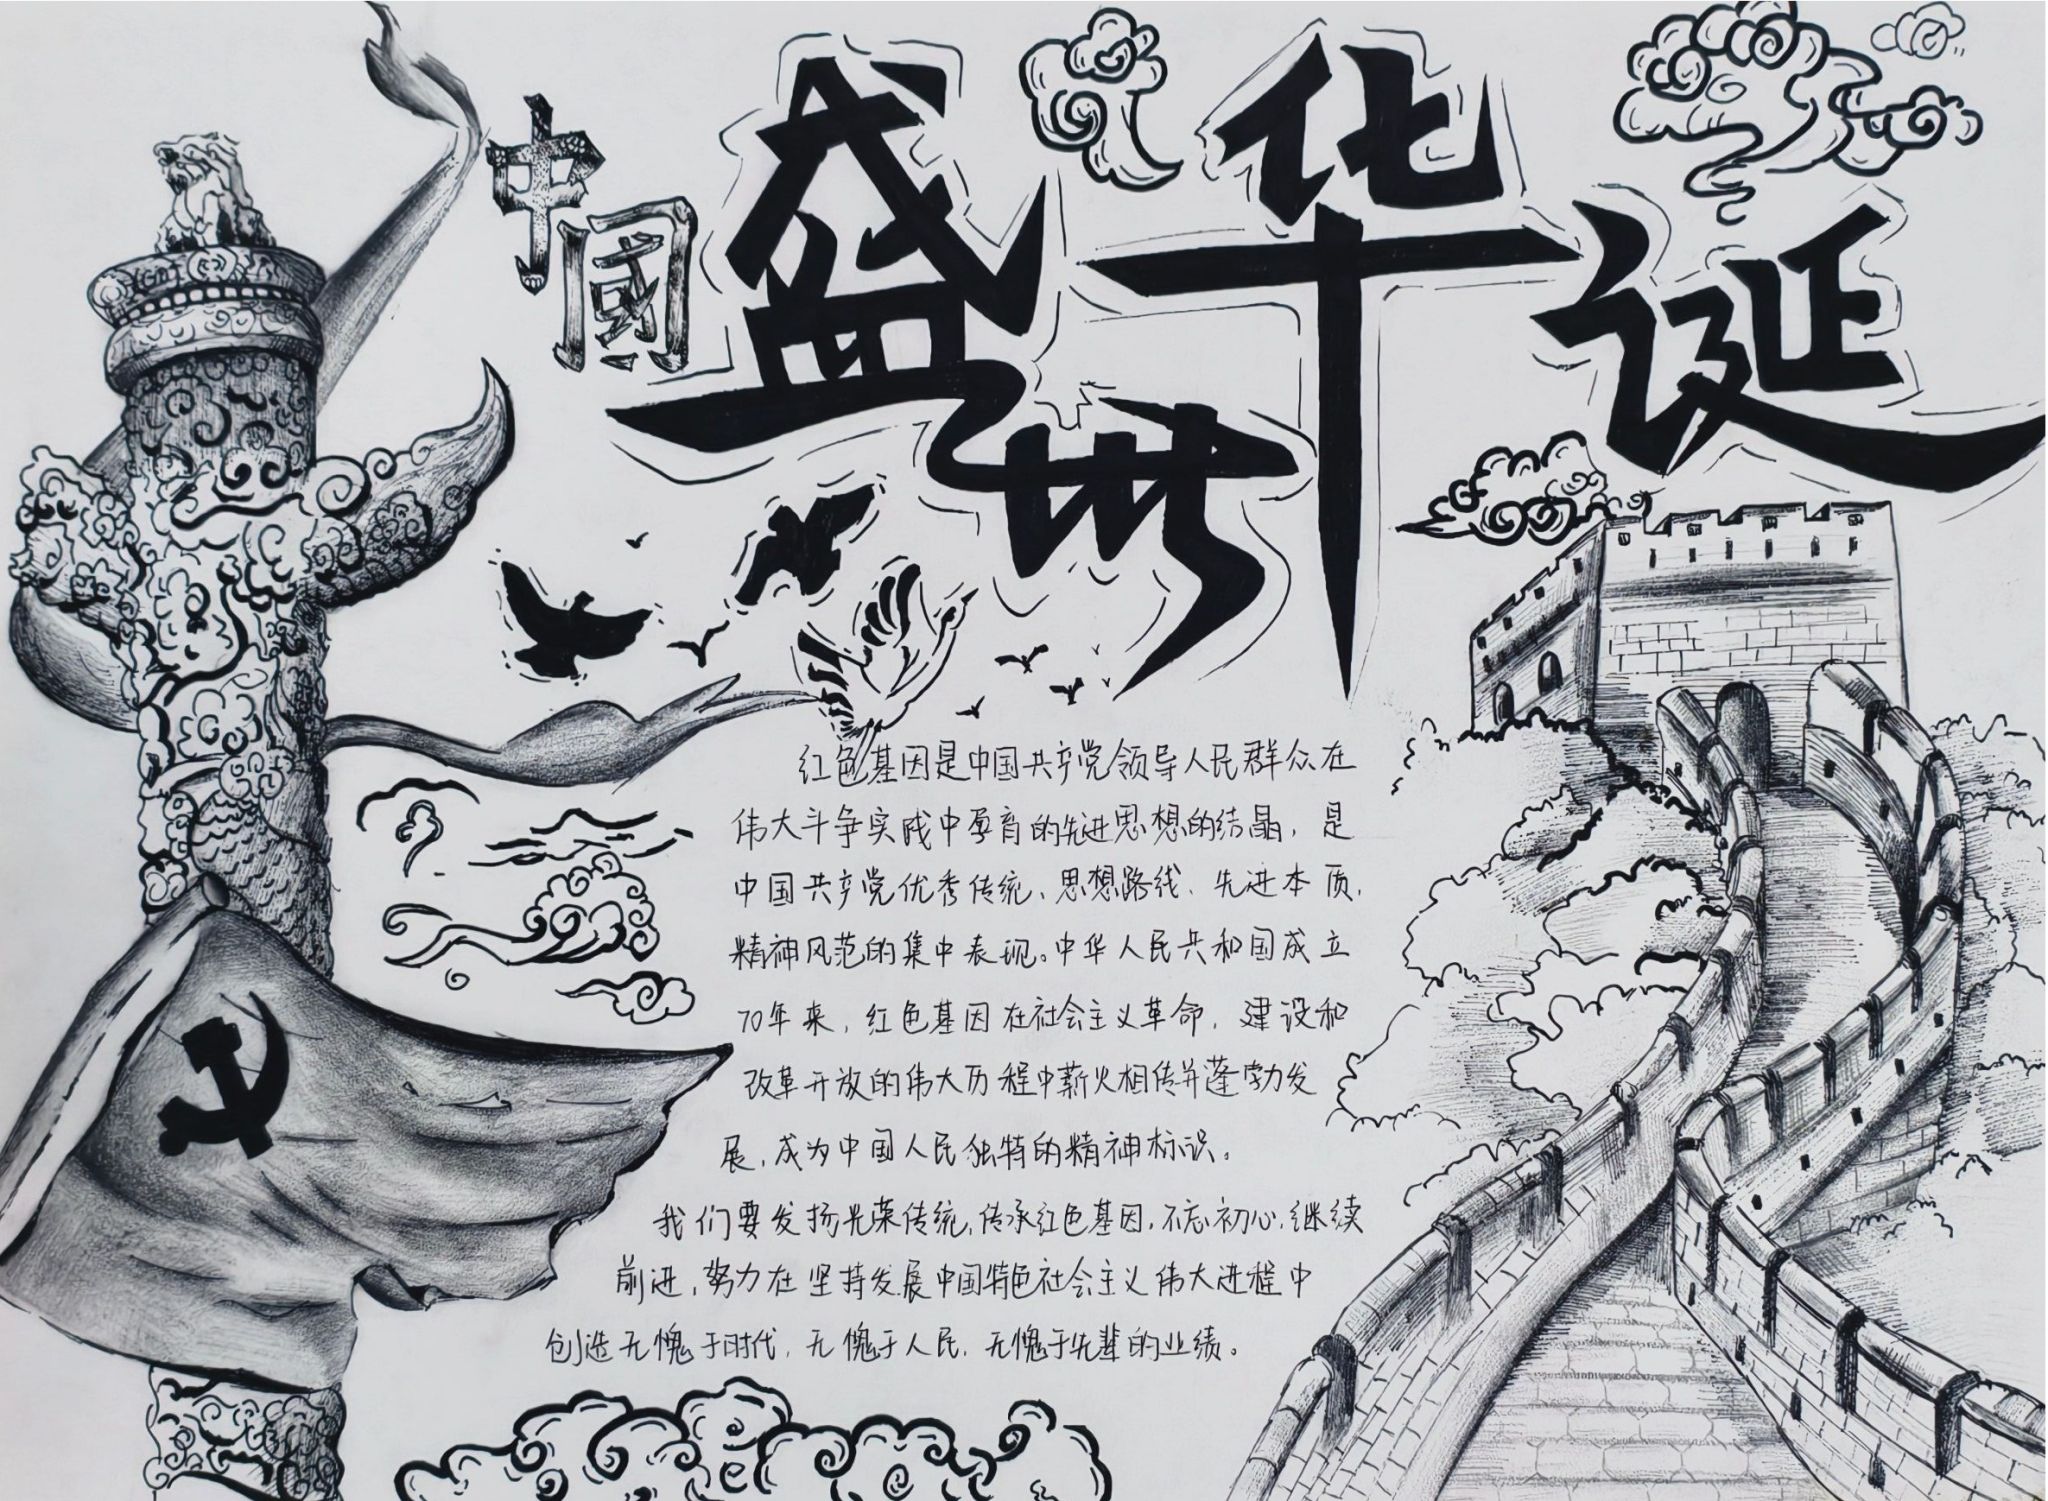 中國
盛世华诞
红色基因是中国共产党领导人民群众在
伟大斗争实践中孕育的先进思想的结晶，是
中国共产党优秀传统、思想路线、先进本质、
精神风范的集中表现。中华人民共和国成立
70年来，红色基因在社会主义革命，建设和
改革开放的伟大历程中薪火相传并蓬勃发
展，成为中国人民独特的精神标识。
我们要发扬光荣传统，传承红色基因，不忘初心，继续
前进，努力在坚持发展中国特色社会主义伟大进程中
创造无愧于时代，无愧于人民，无愧于先辈的业绩。